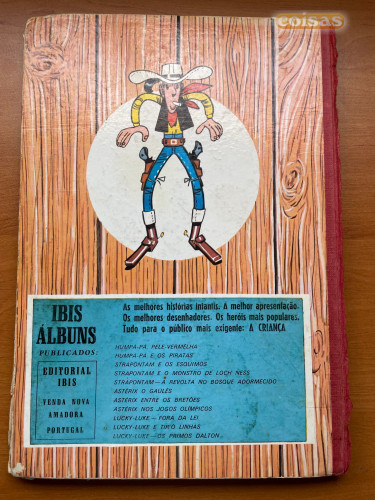 coisas
As melhores histórias infantis. A melhor apresentação.
Os melhores desenhadores. Os heróis mais populares.
Tudo para o público mais exigente: A CRIANÇA
IBIS
ÁLBUNS
PUBLICADOS:
EDITORIAL
IBIS
VENDA NOVA
AMADORA
PORTUGAL
HUMPÁ-PÁ, PELE-VERMELHA
HUMPÁ-PÁ E OS PIRATAS
STRAPONTAM E OS ESQUIMÓS
STRAPONTAM E O MONSTRO DE LOCH NESS
STRAPONTAM — A REVOLTA NO BOSQUE ADORMECIDO
ASTÉRIX O GAULÊS
ASTÉRIX ENTRE OS BRETÕES
ASTÉRIX NOS JOGOS OLÍMPICOS
LUCKY-LUKE — FORA DA LEI
LUCKY-LUKE E TIFO LINHAS
LUCKY-LUKE — OS PRIMOS DALTON